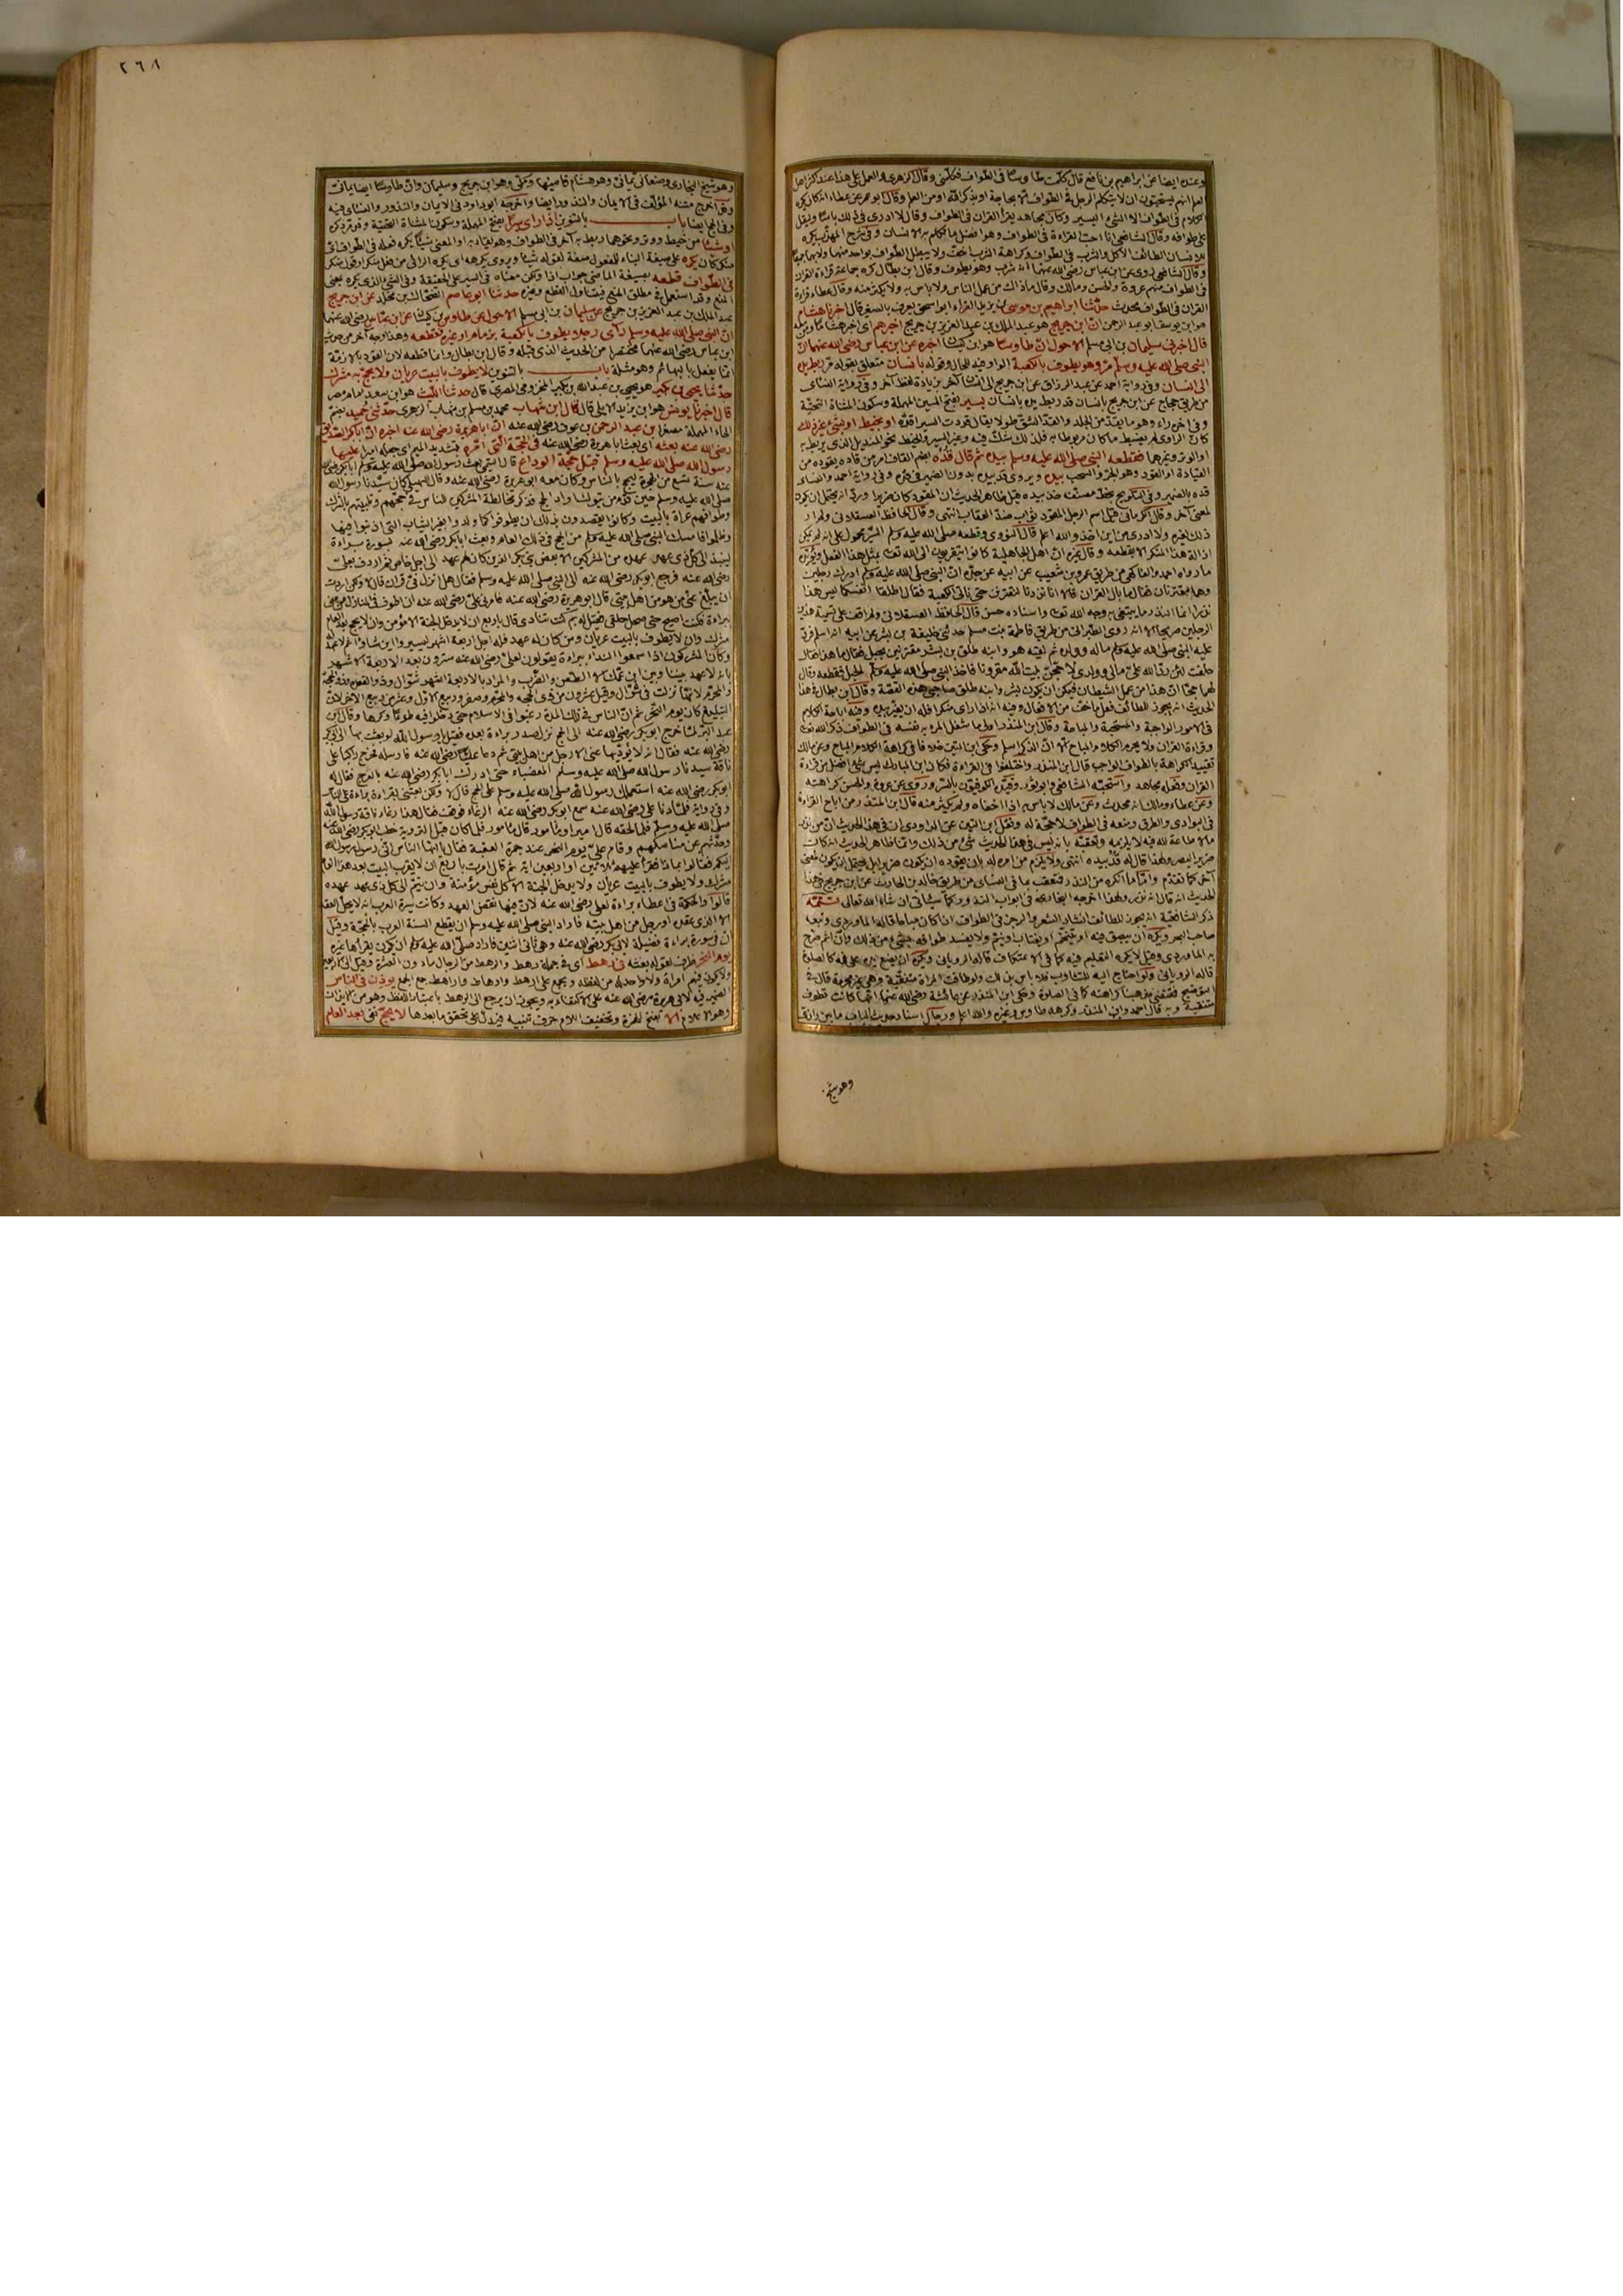 وعنه ايضا عن ابراهيم بن نافع قال كلمت طاوسا فى الطواف فكلمنى وقال الترمذى والعمل على هذا عند اكثر اهل
العلم انهم يستحبون ان لا يتكلم الرجل فى الطواف الا بحاجة او بذكر الله او من العلم وقال ابو عمر عن عطاء انه كان يكره
الكلام فى الطواف الا الشئ اليسير وكان مجاهد يقرأ القران فى الطواف وقال لا ادرى فى ذلك باسا
على طوافه وقال الشافعى انا احب القراءة فى الطواف وهو افضل ما تكلم به الانسان وفى شرح المهذب يكره
للانسان الطائف الاكل والشرب فى الطواف وكراهة الشرب اخف ولا يبطل الطواف بواحد منهما ولا بهما جميعا
وقال الشافعى روى عن ابن عباس رضى الله عنهما انه شرب وهو يطوف وقال ابن بطال كره جماعة قراءة القران
فى الطواف منهم عروة والحسن ومالك وقال ماذاك من عمل الناس ولا باس به ولا يكثر منه وقال عطاء قراءة
القران فى الطواف محدث حدثنا ابراهيم بن موسى بن يزيد الفراء ابو اسحق يعرف بالصغير قال اخبرنا هشام
هو ابن يوسف ابو عبد الرحمن ان ابن جريج هو عبد الملك بن عبد العزيز بن جريج اخبرهم
قال اخبرنى سليمان بن ابى مسلم الاحول ان طاوسا هو ابن كيسان اخبره عن ابن عباس رضى الله عنهما ان
النبى صلى الله عليه وسلم مر وهو يطوف بالكعبة الواو فيه للحال وقوله بانسان متعلق بقوله مر ربط يده
الى انسان وفى رواية احمد عن عبد الرزاق عن ابن جريج الى انسان آخر بزيادة لفظ آخر وفى رواية النسائى
من طريق حجاج عن ابن جريج بانسان قد ربط يده بانسان بسير بفتح السين المهملة وسكون المثناة التحتية
وفى آخره راء وهو ما يقد من الجلد والقد الشق طولا يقال قددت السير اقده او بخيط او بشئ غير ذلك
كان الراوى لم يضبط ما كان مربوطا به فلذلك شك فيه وغير السير والخيط نحو المنديل الذى يربط به
او الوتر وغيرهما فقطعه النبى صلى الله عليه وسلم بيده ثم قال قده بضم القاف امر من قاده يقوده من
القيادة او القود وهو الجر والسحب بيده ويروى قد بيده بدون الضمير فى قده وفى رواية احمد والنسائى
لمعنى آخر وقال الكرمانى قيل اسم الرجل المقود ثواب ضد العقاب انتهى وقال الحافظ العسقلانى ولم ار
ذلك لغيره ولا ادرى من اين اخذه والله اعلم قال النووى وقطعه صلى الله عليه وسلم السير محمول على انه لم يمكن
ازالة هذا المنكر الا بقطعه وقال غيره ان اهل الجاهلية كانوا يتقربون الى الله تعالى بمثل هذا الفعل ويؤيده
ما رواه احمد والفاكهى من طريق عمرو بن شعيب عن ابيه عن جده ان النبى صلى الله عليه وسلم ادرك رجلين
وهما مقترنان فقال ما بال القران قالا انا نذرنا لنقترنن حتى ناتى الكعبة فقال اطلقا انفسكما ليس هذا
نذرا انما النذر ما يبتغى به وجه الله تعالى واسناده حسن قال الحافظ العسقلانى ولم اقف على تسمية هذين
الرجلين صريحا الا انه روى الطبرانى من طريق فاطمة بنت مسلم حدثنى خليفة بن بشر عن ابيه انه اسلم فرد
عليه النبى صلى الله عليه وسلم ماله وولده ثم لقيه هو وابنه طلق بن بشر مقترنين بحبل فقال ما هذا فقال
حلفت لئن رد الله على مالى وولدى لاحجن بيت الله مقرونا فاخذ النبى صلى الله عليه وسلم الحبل فقطعه وقال
لهما حجا ان هذا من عمل الشيطان فيمكن ان يكون بشر وابنه طلق صاحبى هذه القصة وقال ابن بطال فى هذا
الحديث انه يجوز للطائف فعل ما خف من الافعال وفيه انه اذا راى منكرا فله ان يغيره بيده وفيه اباحة الكلام
فى الامور الواجبة والمستحبة والمباحة وقال ابن المنذر اولى ما شغل المرء به نفسه فى الطواف ذكر الله تعالى
وقراءة القران ولا يحرم الكلام المباح الا ان الذكر اسلم وحكى ابن التين خلافا فى كراهة الكلام المباح وعن مالك
تقييد الكراهة بالطواف الواجب قال ابن المنذر واختلفوا فى القراءة فكان ابن المبارك يقول ليس شئ افضل من قراءة
القران وفعله مجاهد واستحبه الشافعى وابو ثور وقيده الكوفيون بالسر وروى عن عروة والحسن كراهته
وعن عطاء ومالك انه محدث وعن مالك لا باس به اذا اخفاه ولم يكثر منه قال ابن المنذر من اباح القراءة
فى البوادى والطرق ومنعه فى الطواف لا حجة له ونقل ابن التين عن الداودى ان فى هذا الحديث ان من نذر
ما لا طاعة لله فيه لا يلزمه وتعقبه بانه ليس فى هذا الحديث شئ من ذلك وانما ظاهر الحديث انه كان
ضرير البصر ولهذا قال له قده بيده انتهى ولا يلزم من امره له بان يقوده ان يكون ضريرا بل يحتمل ان يكون لمعنى
آخر كما تقدم واما ما انكره من النذر فتعقب بما فى النسائى من طريق خالد بن الحارث عن ابن جريج فى هذا
الحديث انه قال انه نذر ولهذا اخرجه البخارى فى ابواب النذور كما سياتى ان شاء الله تعالى تتمة
ذكر الشافعية انه يجوز للطائف انشاد الشعر والرجز فى الطواف اذا كان مباحا قاله الماوردى وتبعه
صاحب البحر ويكره ان يبصق فيه او يتنخم او يغتاب او يشتم ولا يفسد طوافه بشئ من ذلك وان اثم صرح
به الماوردى وقيل لا يكره التعليم فيه كما فى الاعتكاف قاله الرويانى ويكره ان يضع يده على فيه كما فى الصلوة
قاله الرويانى ولو احتاج اليه للتثاوب فلا باس بذلك ولو طافت المراة متنقبة وهى غير محرمة قال فى
التوضيح فمقتضى مذهبنا كراهته كما فى الصلوة وحكى ابن المنذر عن عائشة رضى الله عنها انها كانت تطوف
متنقبة وبه قال احمد وابن المنذر وكرهه طاوس وغيره والله اعلم ورجال اسناد حديث الباب ما بين رازى
وهو شيخ
٢٦٨
وهو شيخ البخارى وصنعانى يمانى وهو هشام قاضيها ومكى وهو ابن جريج وسليمان وان طاوسا ايضا يمانى
وقد اخرج متنه المؤلف فى الايمان والنذور ايضا واخرجه ابو داود فى الايمان والنذور والنسائى فيه
وفى الحج ايضا باب بالتنوين اذا راى سيرا بفتح المهملة وسكون المثناة التحتية وقد مر ذكره
او شيئا من خيط ووتر ونحوهما ربط به آخر فى الطواف وهو يقاد به او المعنى شيئا يكره فعله فى الطواف اى
فى الطواف قطعه بصيغة الماضى جواب اذا
المنع وقد استعمل فى مطلق المنع فيتناول القطع وغيره حدثنا ابو عاصم الضحاك بن مخلد عن ابن جريج
عبد الملك بن عبد العزيز بن جريج عن سليمان بن ابى مسلم الاحول عن طاوس بن كيسان عن ابن عباس رضى الله عنهما
ان النبى صلى الله عليه وسلم راى رجلا يطوف بالكعبة بزمام او غيره فقطعه وهذا وجه آخر من حديث
ابن عباس رضى الله عنهما مختصرا من الحديث الذى قبله وقال ابن بطال وانما قطعه لان القود بالازمة
انما يفعل بالبهائم وهو مثلة باب بالتنوين لا يطوف بالبيت عريان ولا يحج مشرك
حدثنا يحيى بن بكير هو يحيى بن عبد الله بن بكير المخزومى المصرى قال حدثنا الليث هو ابن سعد امام مصر
قال اخبرنا يونس هو ابن يزيد الايلى قال قال ابن شهاب محمد بن مسلم بن شهاب الزهرى حدثنى حميد بضم
الحاء المهملة مصغرا بن عبد الرحمن بن عوف رضى الله عنه ان ابا هريرة رضى الله عنه اخبره ان ابا بكر الصديق
رضى الله عنه بعثه اى بعث ابا هريرة رضى الله عنه فى الحجة التى امره بتشديد الميم اى جعله اميرا عليها
رسول الله صلى الله عليه وسلم قبل حجة الوداع
عنه سنة تسع من الهجرة ليحج بالناس وكان معه ابو هريرة رضى الله عنه وقال السهيلى كان سيدنا رسول الله
صلى الله عليه وسلم حين قدم من تبوك اراد الحج فذكر مخالطة المشركين الناس فى حجهم وتلبيتهم بالشرك
وطوافهم عراة بالبيت وكانوا يقصدون بذلك ان يطوفوا كما ولدوا بغير الثياب التى اذنبوا فيها
وظلموا فامسك النبى صلى الله عليه وسلم من الحج فى ذلك العام وبعث ابا بكر رضى الله عنه بسورة براءة
لينبذ الى كل ذى عهد عهده من المشركين الا بعض بنى بكر الذين كان لهم عهد الى اجل خاص ثم اردف بعلى
رضى الله عنه فرجع ابو بكر رضى الله عنه الى النبى صلى الله عليه وسلم فقال هل انزل فى قران قال لا ولكن اردت
ان يبلغ عنى من هو من اهل بيتى قال ابو هريرة رضى الله عنه فامرنى على رضى الله عنه ان اطوف فى المنازل من منى
ببراءة فكنت اصيح حتى صحل حلقى فقيل له بم كنت تنادى قال باربع ان لا يدخل الجنة الا مؤمن وان لا يحج بعد العام
مشرك وان لا يطوف بالبيت عريان ومن كان له عهد فله اجل اربعة اشهر
وكان المشركون اذا سمعوا النداء ببراءة يقولون لعلى رضى الله عنه سترون بعد الاربعة الاشهر
بانه لا عهد بيننا وبين ابن عمك الا الطعن والضرب والمراد بالاربعة اشهر شوال وذو القعدة وذو الحجة
والمحرم لانها نزلت فى شوال وقيل عشرون من ذى الحجة والمحرم وصفر وربيع الاول وعشر من ربيع الآخر لان
التبليغ كان يوم النحر ثم ان الناس فى ذلك المدة رغبوا فى الاسلام حتى دخلوا فيه طوعا وكرها وقال ابن
عبد البر لما خرج ابو بكر رضى الله عنه الى الحج نزل صدر براءة بعده فقيل يا رسول الله لو بعثت بها الى ابى بكر
رضى الله عنه فقال انه لا يؤديها عنى الا رجل من اهل بيتى ثم دعا عليا رضى الله عنه فارسله فخرج راكبا على
ناقة سيدنا رسول الله صلى الله عليه وسلم العضباء حتى ادرك ابا بكر رضى الله عنه بالعرج فقال له
ابو بكر رضى الله عنه استعملك رسول الله صلى الله عليه وسلم على الحج قال لا ولكن بعثنى بقراءة براءة على الناس
صلى الله عليه وسلم فلما لحقه قال اميرا او مامورا قال مامور
وحدثهم عن مناسكهم وقام على يوم النحر عند جمرة العقبة فقال يا ايها الناس انى رسول رسول الله
اليكم فقالوا بماذا فقرا عليهم ثلاثين او اربعين اية ثم قال امرت باربع ان لا يقرب البيت بعد هذا العام
مشرك ولا يطوف بالبيت عريان ولا يدخل الجنة الا كل نفس مؤمنة وان يتم الى كل ذى عهد عهده
قالوا والحكمة فى اعطاء براءة لعلى رضى الله عنه لان فيها نقض العهد وكانت سيرة العرب انه لا يحل العقد
الا الذى عقده او رجل من اهل بيته فاراد النبى صلى الله عليه وسلم ان يقطع السنة العرب بالحجة وقيل
ان فى سورة براءة فضيلة لابى بكر رضى الله عنه وهى ثانى اثنين فاراد صلى الله عليه وسلم ان يكون يقراها غيره
يوم النحر ظرف لقوله بعثه فى رهط اى فى جملة رهط والرهط من الرجال ما دون العشرة وقيل الى الاربعين
ولا يكون فيهم امراة ولا واحد له من لفظه ويجمع على ارهط وارهاط واراهط جمع الجمع يؤذن فى الناس
الضمير فيه لابى هريرة رضى الله عنه على الالتفات ويجوز ان يرجع الى الرهط باعتبار اللفظ وهو من الايذان
وهو الاعلام الا بفتح الهمزة وتخفيف اللام حرف تنبيه فيدل على تحقق ما بعدها لا يحج نفى بعد العام